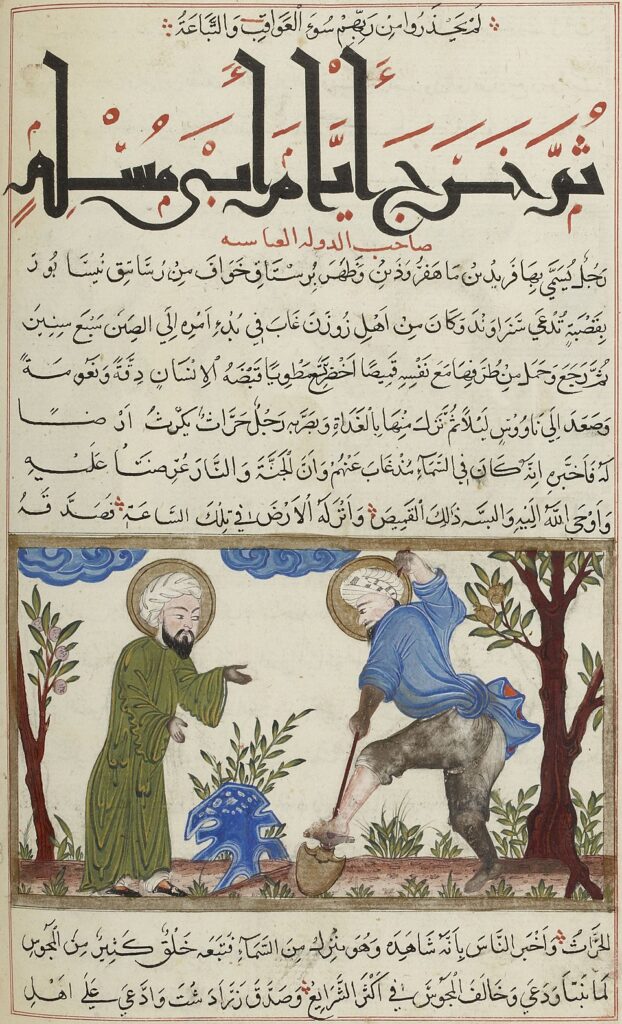 لم يحذروا من ربهم سوء العواقب والتباعة
ثم خرج أيام أبي مسلم
صاحب الدولة العباسية
رجل يسمي بهافريد بن ماهفروذين وظهر برستاق خواف من رساتيق نيسابور
بقصبة تدعي سراوند وكان من اهل زوزن غاب في بدء امره الي الصين سبع سنين
ثم رجع وحمل من طرفها مع نفسه قميصا اخضر مطويا قبضه الانسان دقة ونعومة
وصعد الي ناووس ليلا ثم نزل منها بالغداة وبصر به رجل حراث يكرث ارضا
له فاخبره انه كان في السماء مذ غاب عنهم وان الجنة والنار عرضتا عليه
واوحي الله اليه والبسه ذلك القميص وانزله الارض في تلك الساعة فصدقه
الحراث واخبر الناس بانه شاهده وهو ينزل من السماء فتبعه خلق كثير من المجوس
لما تنبأ ودعي وخالف المجوس في اكثر الشرايع وصدق زرادشت وادعي علي اهل